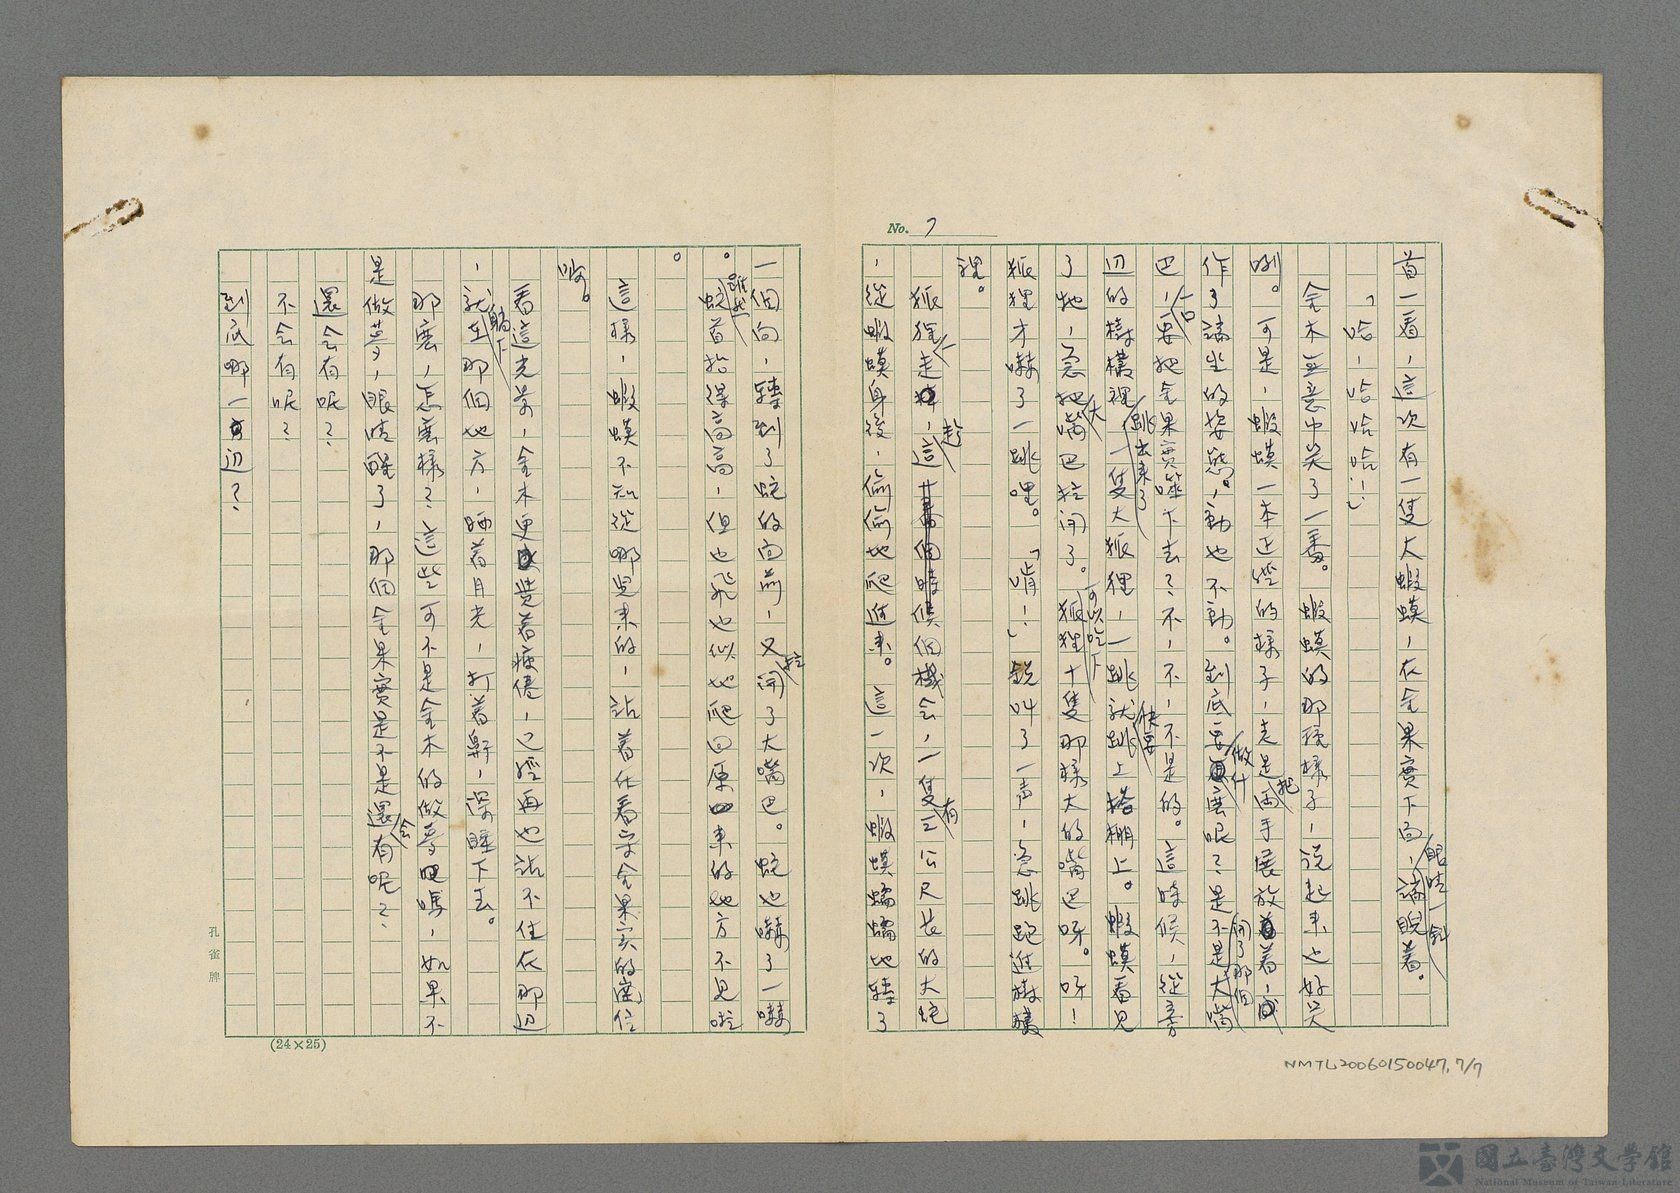 No. 7
首一看，這次有一隻大蝦蟆，在金果實下向，眼睛一斜，諦睨着。
「哈，哈哈哈！」
金木無意中笑了一番。蝦蟆的那種樣子，說起來也好笑
咧。可是，蝦蟆一本正經的樣子，走是把兩手展放着，
作了諦坐的姿態。動也不動。到底要做什麼呢？是不是開了那個大嘴
巴，一口要把金果實噬下去？不，不，不是的。這時候，從旁
辺的樹欉裡跳出來了一隻大狐狸，一跳就快要跳上棚上。蝦蟆看見
了牠，急把大嘴巴拉開了。可以吃下狐狸十隻那樣大的嘴巴呀。呀！
狐狸才嚇了一跳哩。「唷！」銳叫了一声，急跳跑進樹欉
裡。
狐狸一走，趁這個機会，一隻有三公尺長的大蛇
，從蝦蟆身後，偷偷地爬進來。這一次，蝦蟆蠕蠕地轉了
一個向，轉到了蛇的向前，又拉開了大嘴巴。蛇也嚇了一嚇
。雖然蛇首抬得高高，但也飛也似地爬回原來的地方不見啦
。
這樣，蝦蟆不知從哪兒來的，站着在看守金果实的崗位
喲。
看這光景，金木更覺着疲倦，已經再也站不住在那辺
，就躺下在那個地方，晒着月光，打着鼾，深睡下去。
那麼，怎麼樣？這些可不是金木的做夢吧嗎，如果不
是做夢，眼睛醒了，那個金果實是不是還会有呢？
還会有呢？
不会有呢？
到底哪一辺？
孔雀牌
(24×25)
NMTL20060150047, 7/7
國立臺灣文學館
National Museum of Taiwan Literature